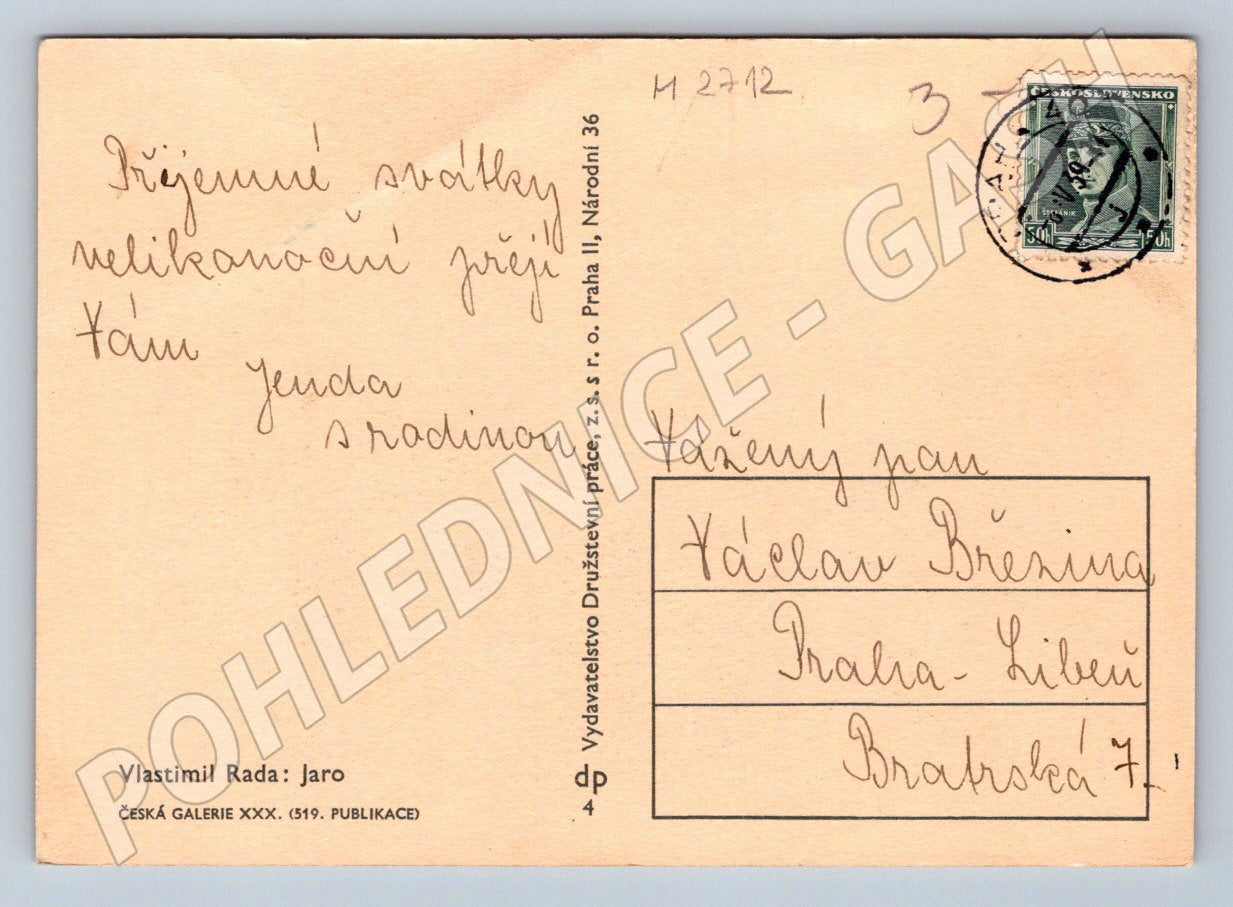 Příjemné svátky
velikonoční přejí
Vám
Jenda
s rodinou
Vlastimil Rada: Jaro
ČESKÁ GALERIE XXX. (519. PUBLIKACE)
Vydavatelstvo Družstevní práce, z. s. s r. o. Praha II, Národní 36
dp
4
M 2712
3
ČESKOSLOVENSKO
ŠTEFÁNIK
50h 50h
PRAHA 40
Vážený pan
Václav Březina
Praha - Libeň
Bratrská 7.
POHLEDNICE - GASH